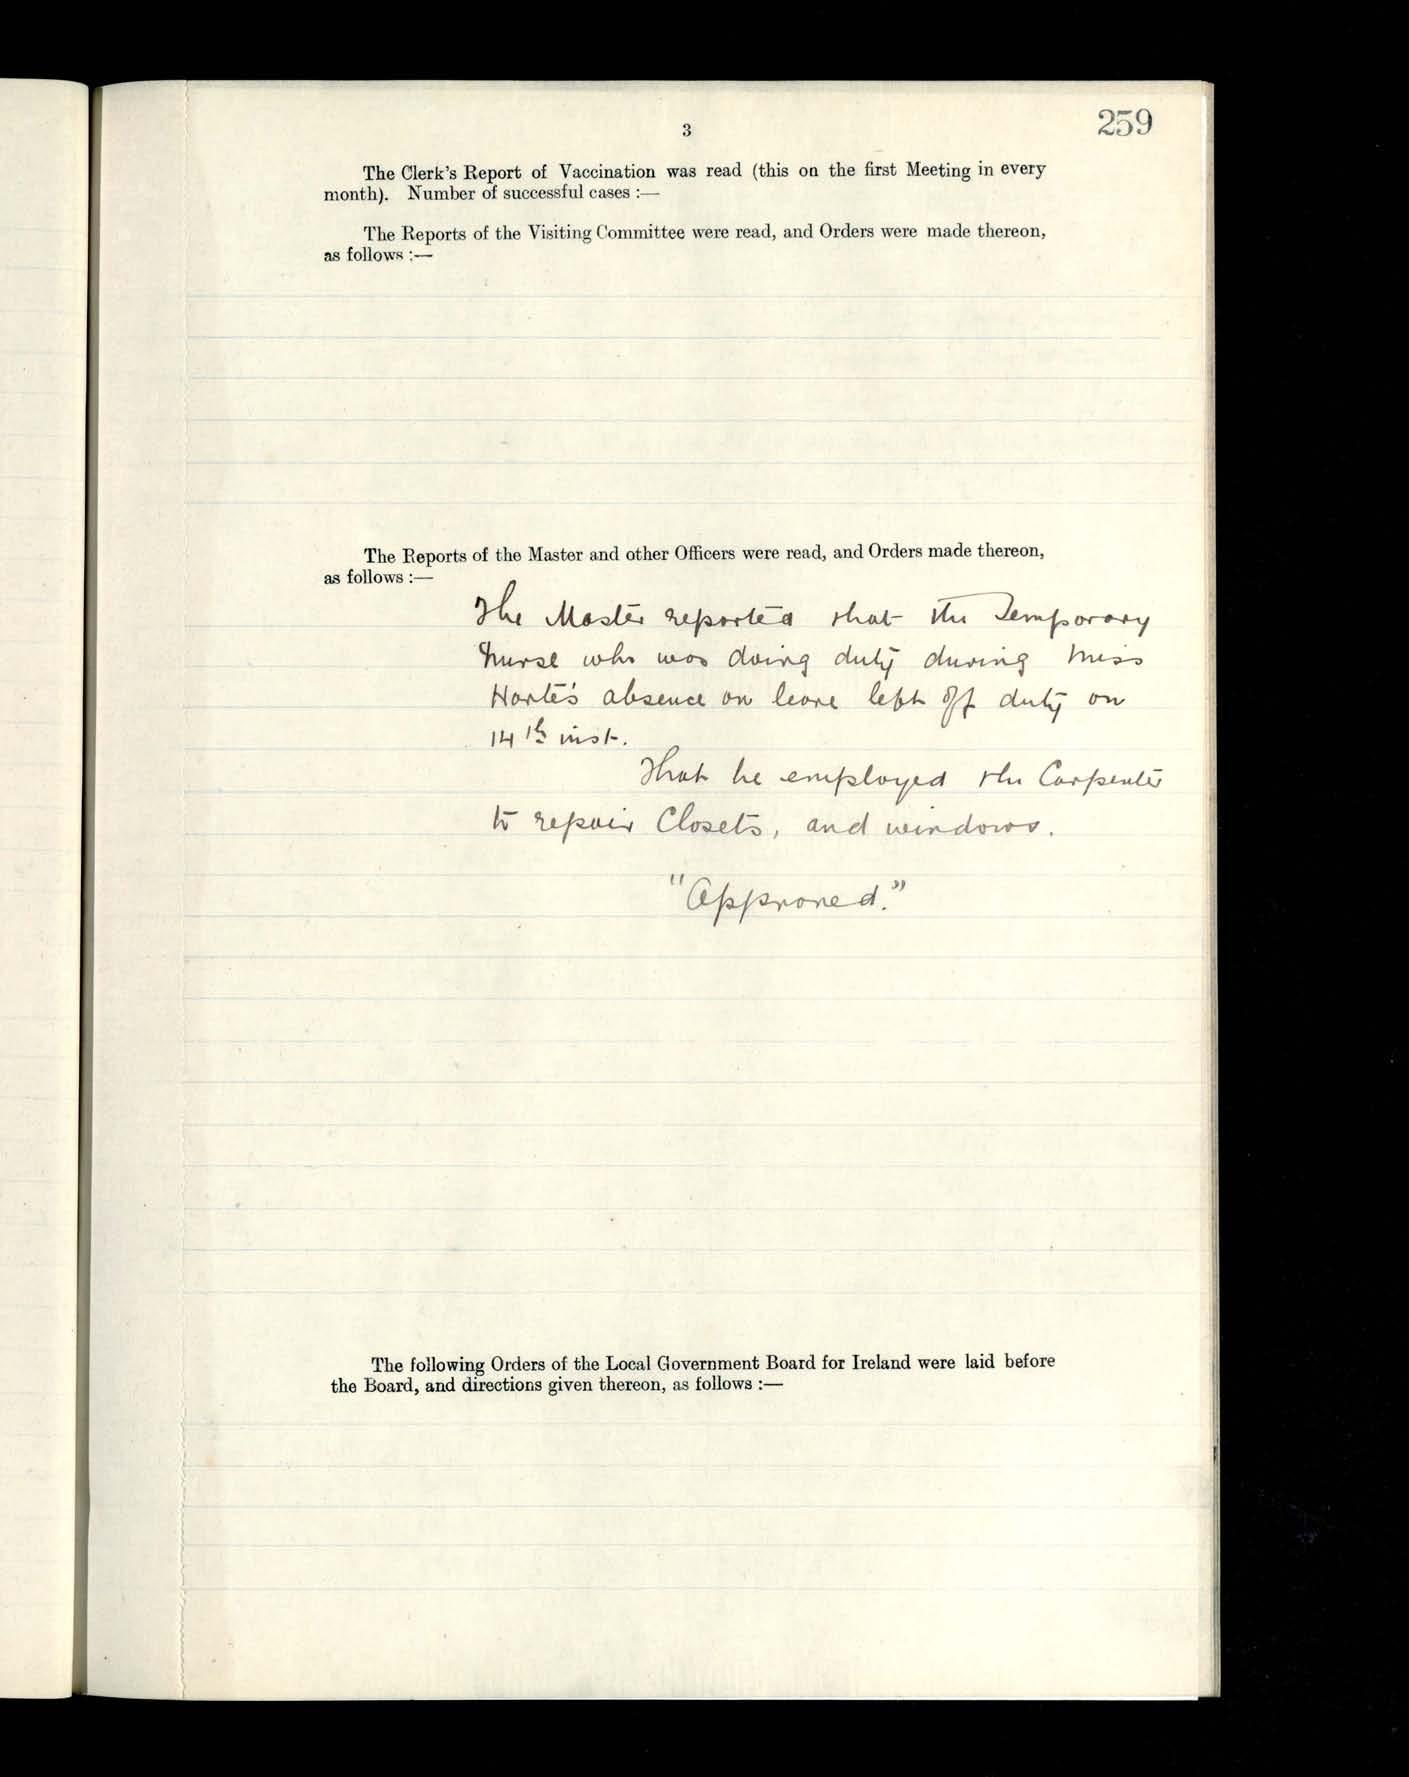 3
259
The Clerk's Report of Vaccination was read (this on the first Meeting in every
month). Number of successful cases :—
The Reports of the Visiting Committee were read, and Orders were made thereon,
as follows :—
The Reports of the Master and other Officers were read, and Orders made thereon,
as follows :—
The Master reported that the Temporary
Nurse who was doing duty during Miss
Harte's absence on leave left off duty on
14th inst.
That he employed the Carpenter
to repair Closets, and windows.
"Approved."
The following Orders of the Local Government Board for Ireland were laid before
the Board, and directions given thereon, as follows :—